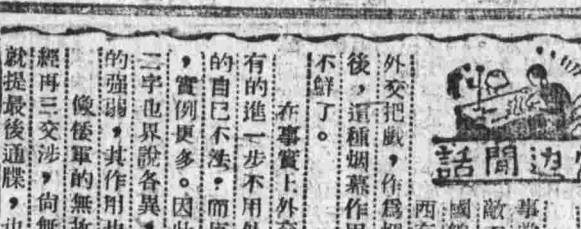 話閒边
事
敵
國
西
外交把戲，作爲
後，這種烟幕作用
不鮮了。
在事實上外交
有的進一步不用外
的自己不法？而
，實例更多。因此
二字也界說各異，
的强弱，其作用也
像倭軍的無故
經再三交涉，尙無
就提最後通牒，也